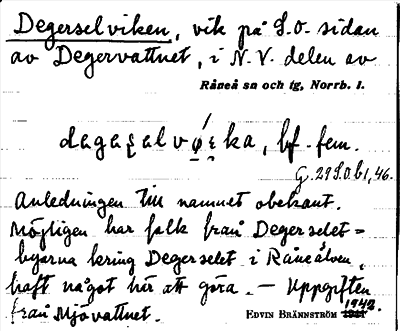 Degerselviken, vik på S.O. sidan
av Degervattnet, i N.V. delen av
Råneå sn och tg, Norrb. l.
bf. fem.
G. 29 S.O b 1, 46.
Anledningen till namnet obekant.
Möjligen har folk från Degerselet=
byarna kring Degerselet i Råneälven,
haft något här att göra. - Uppgiften
från Mjövattnet.
EDVIN BRÄNNSTRÖM 1942.